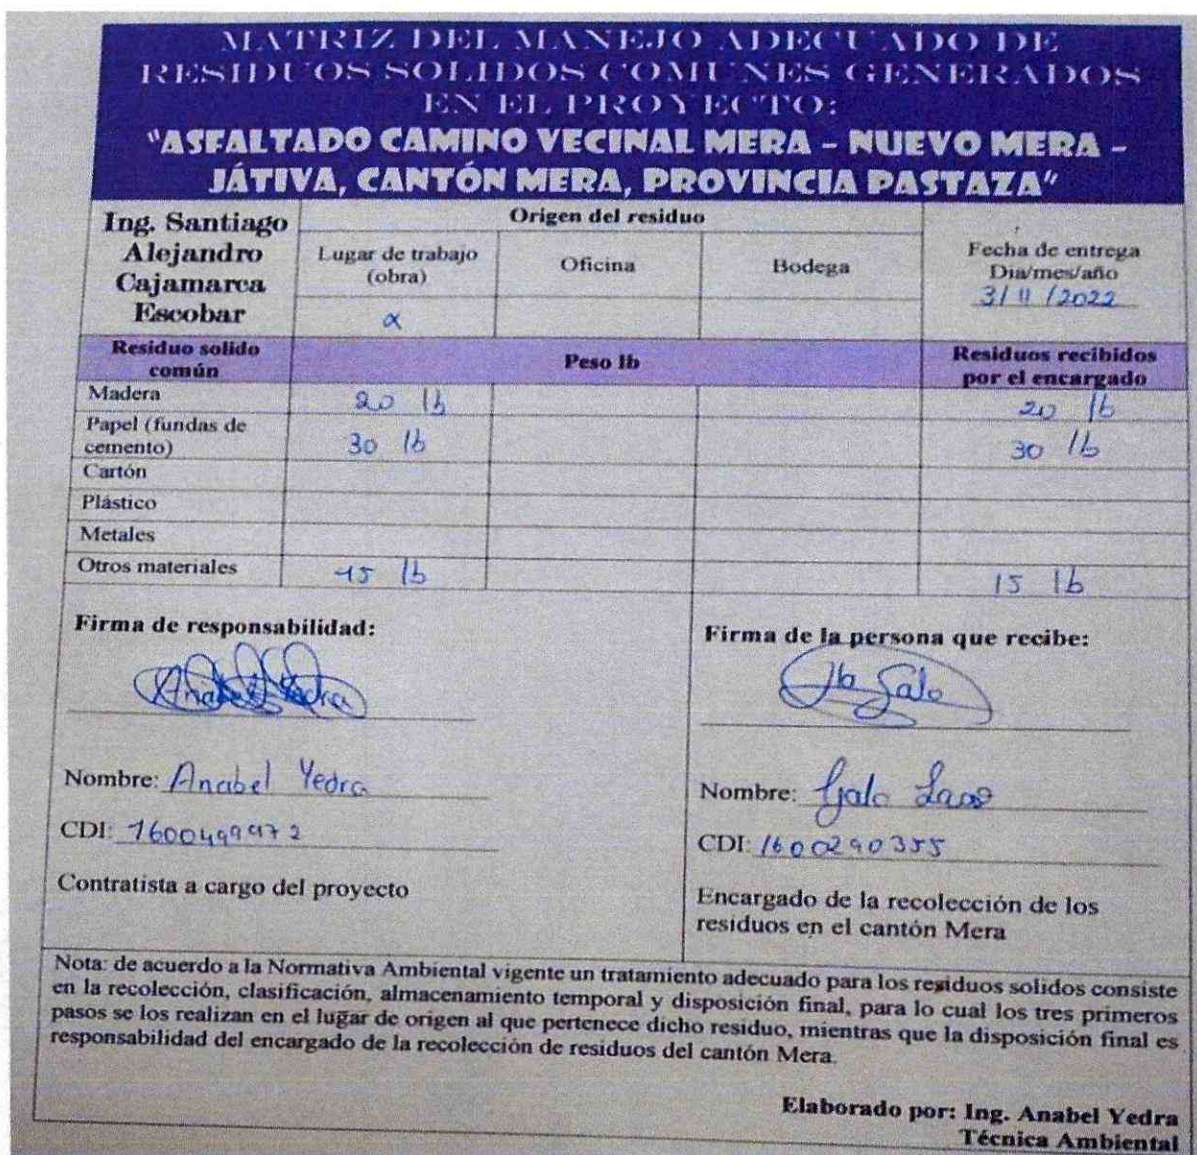 MATRIZ DEL MANEJO ADECUADO DE
RESIDUOS SOLIDOS COMUNES GENERADOS
EN EL PROYECTO:
"ASFALTADO CAMINO VECINAL MERA – NUEVO MERA –
JÁTIVA, CANTÓN MERA, PROVINCIA PASTAZA"
Ing. Santiago
Alejandro
Cajamarca
Escobar
Origen del residuo
Lugar de trabajo
(obra)
Oficina
Bodega
Fecha de entrega
Dia/mes/año
3/11/2022
x
Residuo solido
común
Peso lb
Residuos recibidos
por el encargado
Madera 20 lb 20 lb
Papel (fundas de
cemento) 30 lb 30 lb
Cartón
Plástico
Metales
Otros materiales 15 lb 15 lb
Firma de responsabilidad:
Anabel Yedra
Nombre: Anabel Yedra
CDI: 1600499972
Contratista a cargo del proyecto
Firma de la persona que recibe:
Galo
Nombre: Galo
CDI: 1600290355
Encargado de la recolección de los
residuos en el cantón Mera
Nota: de acuerdo a la Normativa Ambiental vigente un tratamiento adecuado para los residuos solidos consiste
en la recolección, clasificación, almacenamiento temporal y disposición final, para lo cual los tres primeros
pasos se los realizan en el lugar de origen al que pertenece dicho residuo, mientras que la disposición final es
responsabilidad del encargado de la recolección de residuos del cantón Mera.
Elaborado por: Ing. Anabel Yedra
Técnica Ambiental